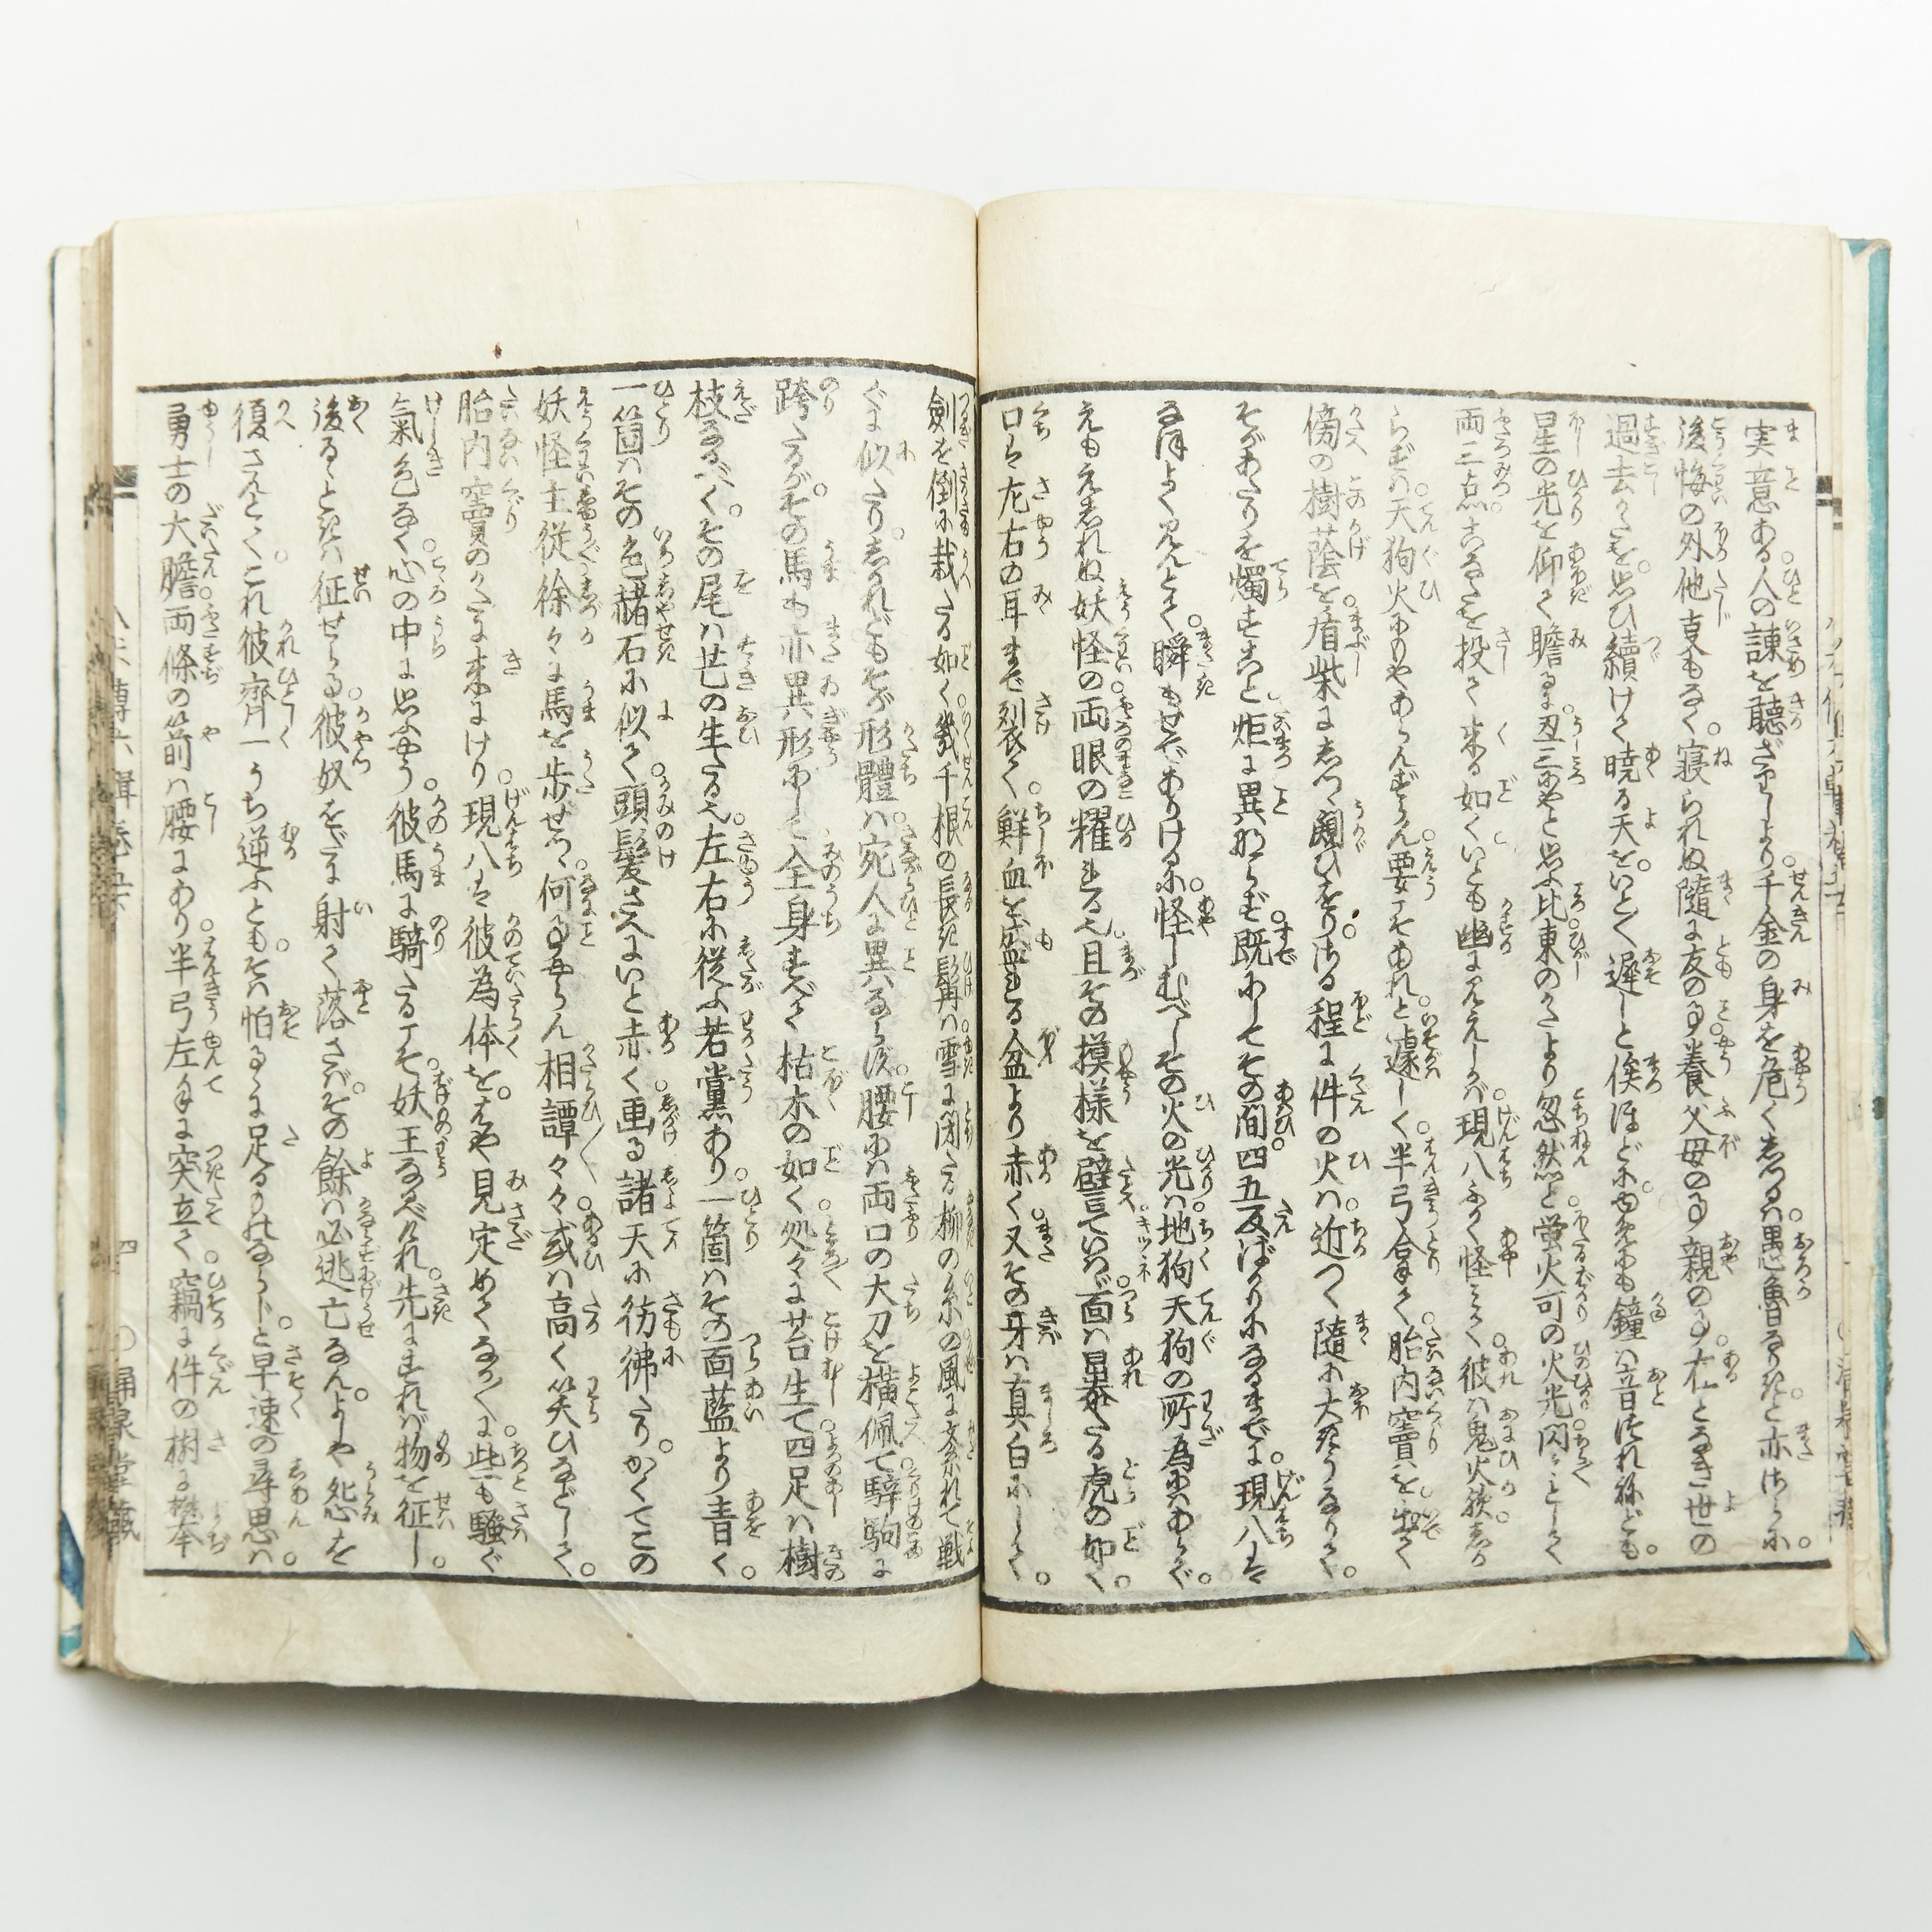 実意ある人の諌を聴ざりしより千金の身を危くしつるは愚魯なりきと亦さらに
後悔の外他事もなく寝られぬ隨に友の事養父母の事親の事在としなき世の
過去かたを思ひ續けて暁る天をいとゞ遅しと俟ほどに
星の光を仰て瞻るに丑三にやと思ふ比東のかたより忽然と螢火可の火光閃々として
両三点あなたを投て来る如くいとも幽に見えしかば現八ふかく怪みて彼は鬼火歟しか
らずは天狗火にもやあらんずらん要こそあれと遽しく半弓合拿て胎内竇を出て
傍の樹蔭を盾柴にしつゝ闚ひをり
そがあたりを燭すこと炬に異ならず既にしてその間四五反ばかりになるまでに現八は
なほよく見んとて瞬もせずありけるに怪しむべしその火の光は地狗天狗の所為にはあらで
えもえしれぬ妖怪の両眼の耀れる也且その模様を譬ていはゞ面は暴たる虎の如く
口は左右の耳まで裂て鮮血を盛れる盆より赤く又その牙は真白にして
劍を倒に栽たる如く幾千根の長き髯は雪に閉たる柳の糸の風に紊れて戦
ぐに似たりしかれどもそが形體は宛人に異ならず腰には両口の大刀を横佩て騂駒に
跨たるがその馬も亦異形にして全身すべて枯木の如く処々に苔生て四足は樹
枝なるべくその尾は芒の生たる也左右に従ふ若黨あり一箇はその面藍より青く
一箇はその色赭石に似て頭髪さへにいと赤く画る諸天に彷彿たりかくてこの
妖怪主従徐々に馬を歩せつゝ何事やらん相譚々々或は高く笑ひなどしつゝ
胎内竇のかたに来にけり現八は彼為体をはや見定めてなか〳〵に些も騒ぐ
氣色なく心の中に思ふやう彼馬に騎たるこそ妖王なるべけれ先にすれば物を征し
後るゝときは征せらる彼奴をだに射て落さばその餘は必逃亡なんよしや怨を
復さんとてこれ彼齊一うち逆ふともそは怕るゝに足るものならじと早速の尋思は
勇士の大膽両條の箭は腰にあり半弓左手に突立て竊に件の樹に攀